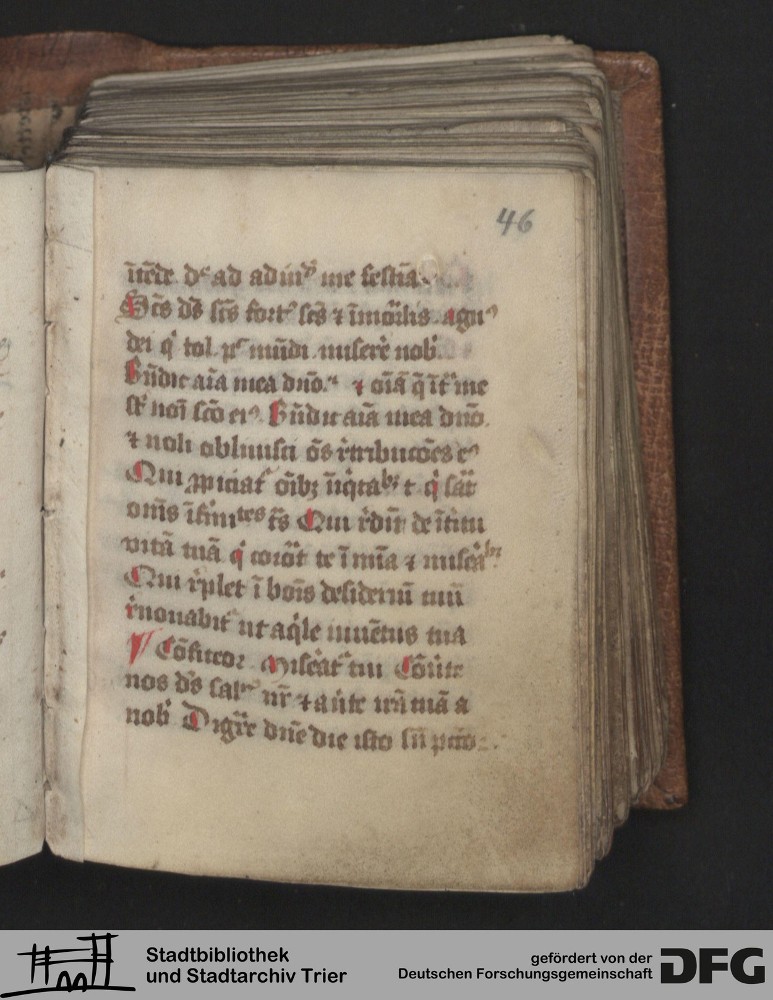 46
ītēde dˢ ad adiuᵈ me festīa
Scs̄ ds̄ scs̄ fortˢ scs̄ ⁊ īmor̄lis agnˀ
dei qͥ tol pˢ mūdi miserē nob̄
Bn̄dic aīa mea dn̄o ⁊ oīa q̄ īt me
noī sc̄o eiˀ Bn̄dic aīa mea dn̄o
⁊ noli obliuisci ōs rtribucōes eˀ
Qui ꝓpiciatˢ oībꝫ īiqtaᵇˢ t qͥ sat
om̄s īfirmitᵉˢ ts̄ Qui rdīt de ītitu
vitā tuā qͥ coroāt te ī mīa ⁊ miseāᵇˢ
Qui rplet ī boīs desideriū tuū
rnouabitˢ ut aqͥle iuuētus tua
V Cōfiteor Miseātˢ tui Cōūte
nos ds̄ salˢ nr̄ ⁊ aūte irā tuā a
nob̄ Digr̄e dn̄e die isto sn̄ pctō
Stadtbibliothek
und Stadtarchiv Trier
gefördert von der
Deutschen Forschungsgemeinschaft DFG